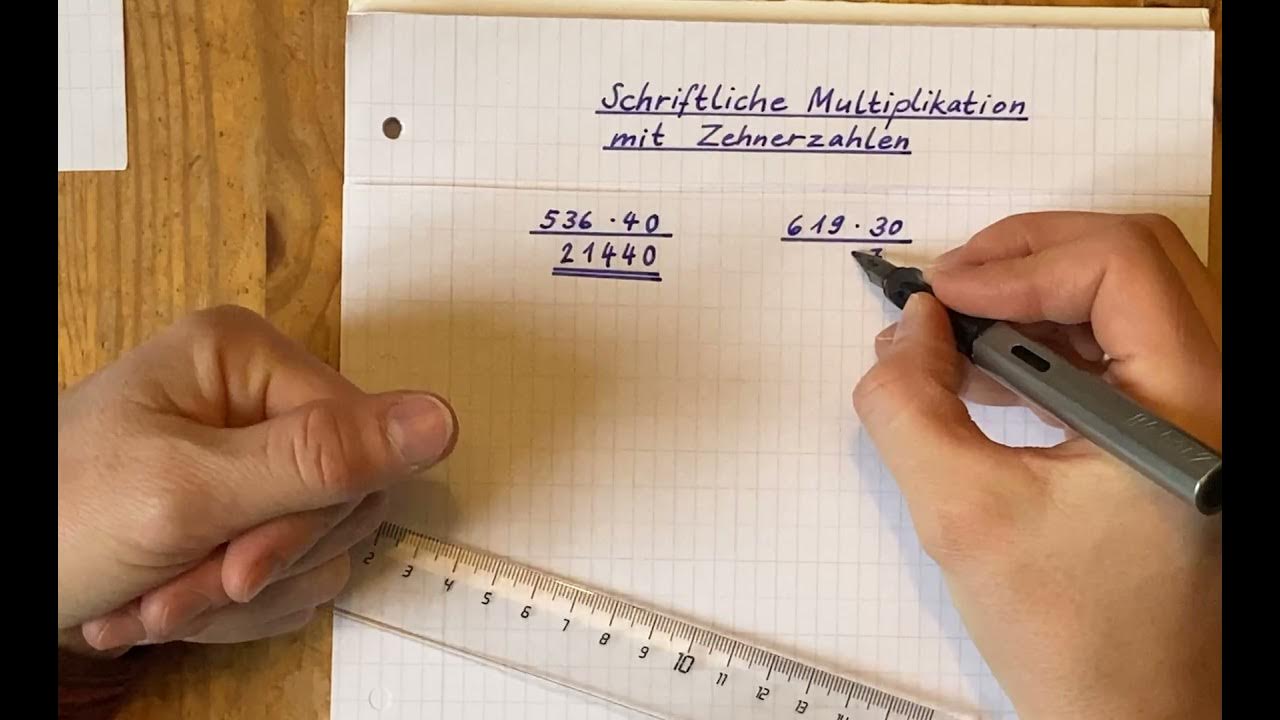 Schriftliche Multiplikation
mit Zehnerzahlen
536 · 40
21440
619 · 30
2 3 4 5 6 7 8 9 10 11 12 13